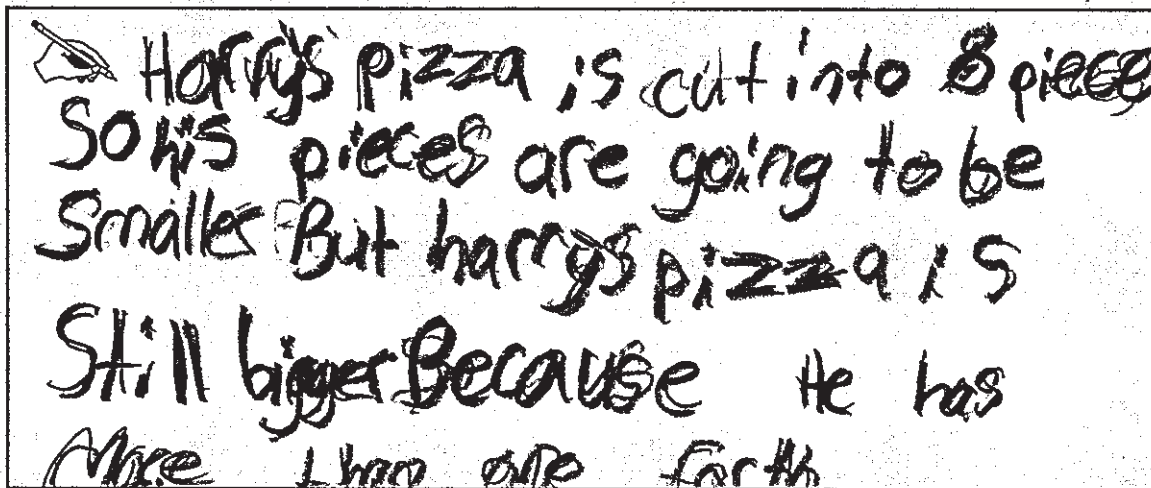 Harry's pizza is cut into 8 piece
So his pieces are going to be
Smaller But harry's pizza is
Still bigger Because He has
More than one forth